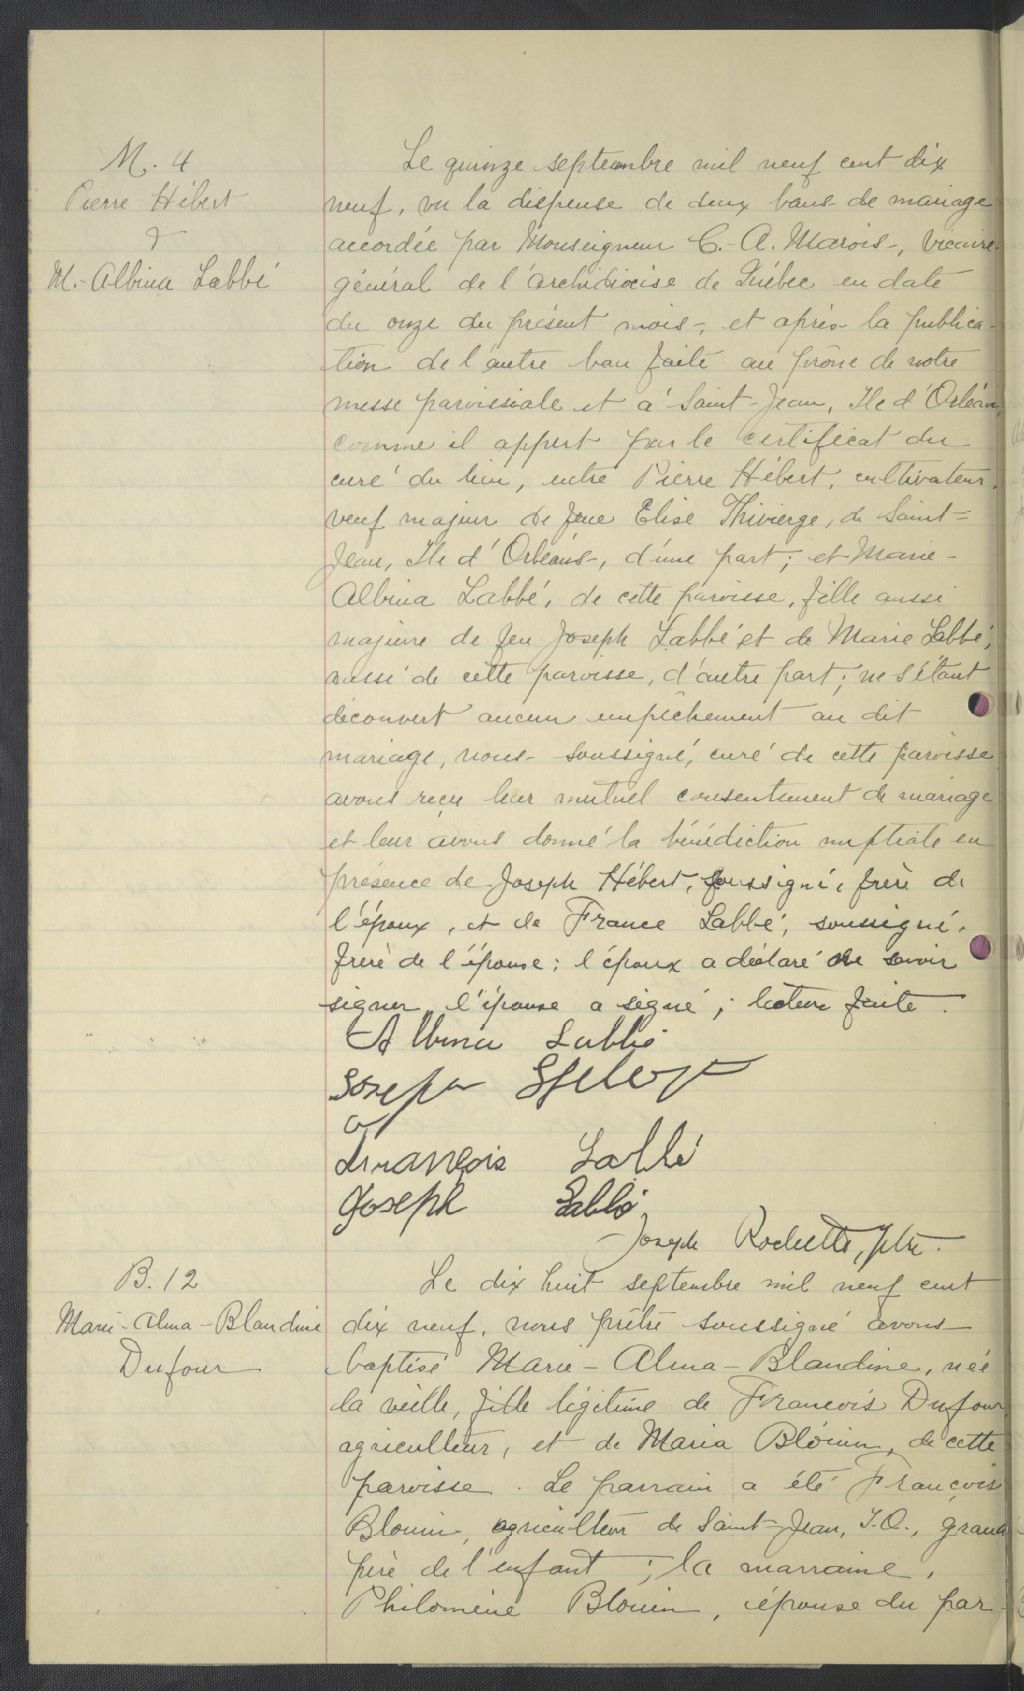 M. 4
Pierre Hébert
&
M.-Albina Labbé
Le quinze septembre mil neuf cent dix
neuf, vu la dispense de deux bans de mariage
accordée par Monseigneur C.-A. Marois, Vicaire
général de l'archidiocèse de Québec en date
du onze du présent mois, et après la publica-
tion de l'autre ban faite au prône de notre
messe paroissiale et à Saint-Jean, Ile d'Orléans,
comme il appert par le certificat du
curé du lieu, entre Pierre Hébert, cultivateur,
veuf majeur de feue Elise Thivierge, de Saint-
Jean, Ile d'Orléans, d'une part; et Marie-
Albina Labbé, de cette paroisse, fille aussi
majeure de feu Joseph Labbé et de Marie Labbé,
aussi de cette paroisse, d'autre part; ne s'étant
découvert aucun empêchement au dit
mariage, nous soussigné, curé de cette paroisse
avons reçu leur mutuel consentement de mariage
et leur avons donné la bénédiction nuptiale en
présence de Joseph Hébert, soussigné, frère de
l'époux, et de France Labbé, soussigné,
frère de l'épouse; l'époux a déclaré ne savoir
signer, l'épouse a signé; lecture faite.
Albina Labbé
Joseph
François Labbé
Joseph Labbé
Joseph Rochette, Ptre.
B. 12
Marie-Alma-Blandine
Dufour
Le dix huit septembre mil neuf cent
dix neuf, nous prêtre soussigné avons
baptisé Marie-Alma-Blandine, née
la veille, fille légitime de François Dufour
agriculteur, et de Maria Blouin, de cette
paroisse. Le parrain a été François
Blouin, agriculteur de Saint-Jean, I.O., grand
père de l'enfant; la marraine,
Philomène Blouin, épouse du par-